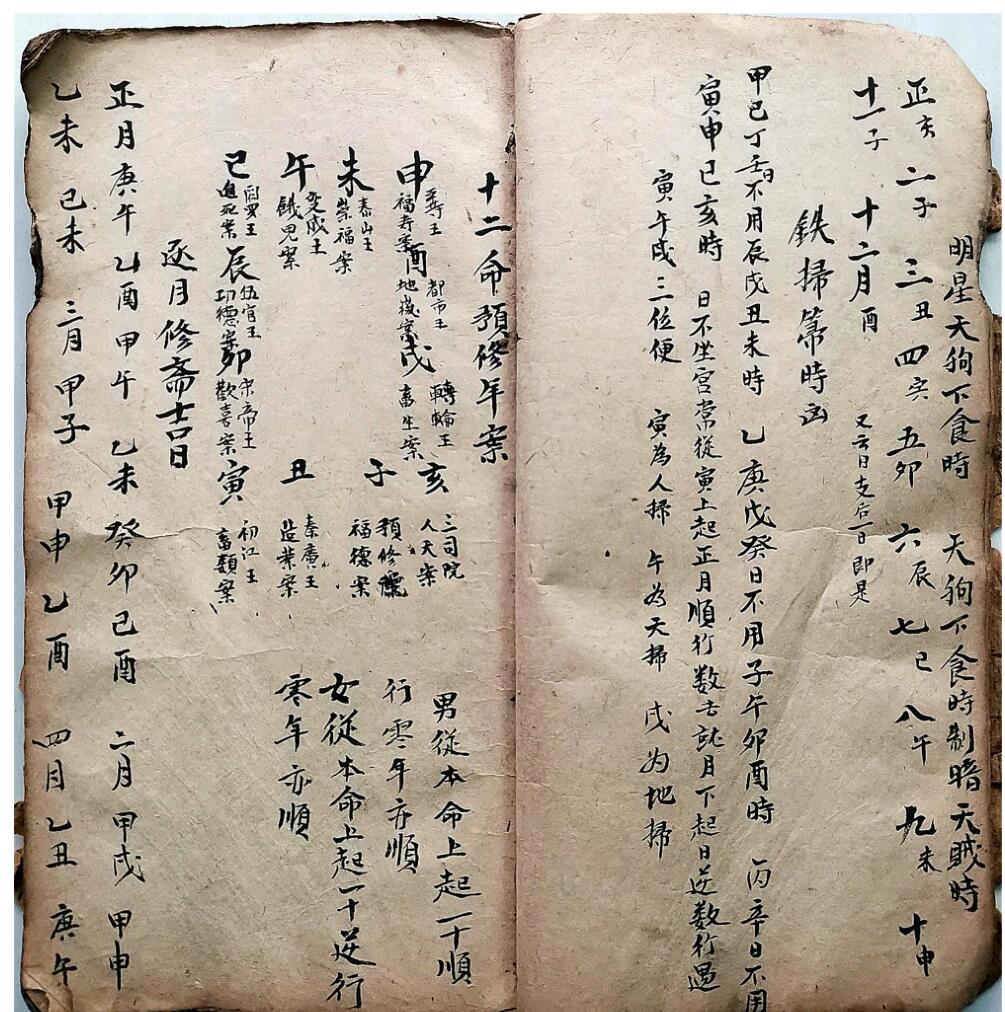 明星天狗下食時 天狗下食時制暗天賊時
正亥 二子 三丑 四寅 五卯 六辰 七巳 八午 九未 十申
十一子 十二月酉 又云日支后一日即是
鉄掃箒時凶
甲己丁壬日不用辰戌丑未時 乙庚戊癸日不用子午卯酉時 丙辛日不用
寅申巳亥時 日不坐宮常從寅上起正月順行数去就月下起日逆数行過
寅午戌三位便 寅為人掃 午為天掃 戌为地掃
十二命預修年案
申 尋王 福寿案 酉 都市王 地嶽案 戌 轉輪王 畜生案 亥 三司院 人天案
未 泰山王 崇福案 子 預修院 福德案
午 变成王 餓鬼案 丑 秦廣王 造業案
巳 閻罗王 案 辰 伍官王 功德案 卯 宋帝王 歡喜案 寅 初江王 畜類案
男從本命上起一十順
行零年亦順
女從本命上起一十逆行
零年亦順
逐月修斋吉日
正月庚午 乙酉 甲午 乙未 癸卯 己酉 二月 甲戌 甲申
乙未 己未 三月 甲子 甲申 乙酉 四月 乙丑 庚午